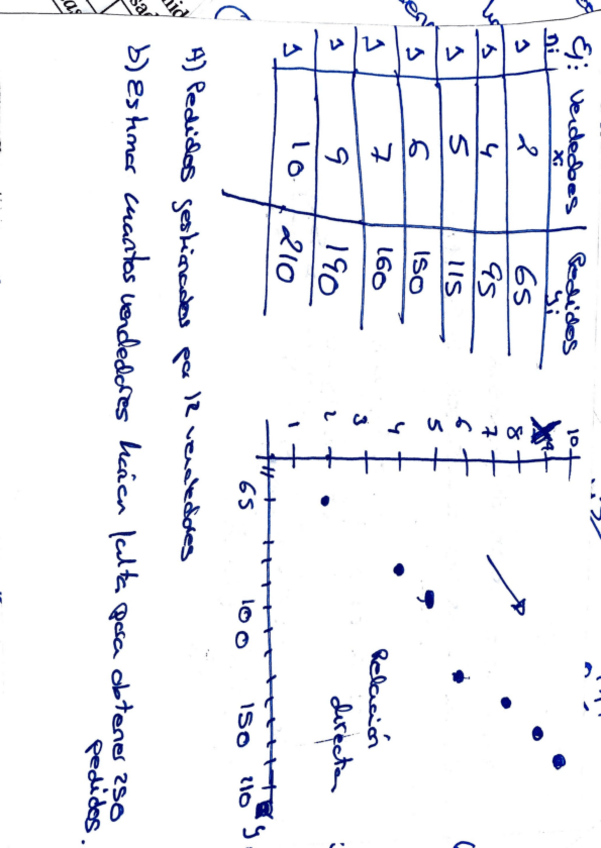 Ej: Vendedores Pedidos
ni xi yi
1 2 65
1 4 95
1 5 115
1 6 150
1 7 160
1 9 190
1 10 210
10
9
8
7
6
5
4
3
2
1
65 100 150 210 y
Relación
directa
A) Pedidos gestionados por 12 vendedores
b) Estimar cuantos vendedores harían falta para obtener 250
pedidos.